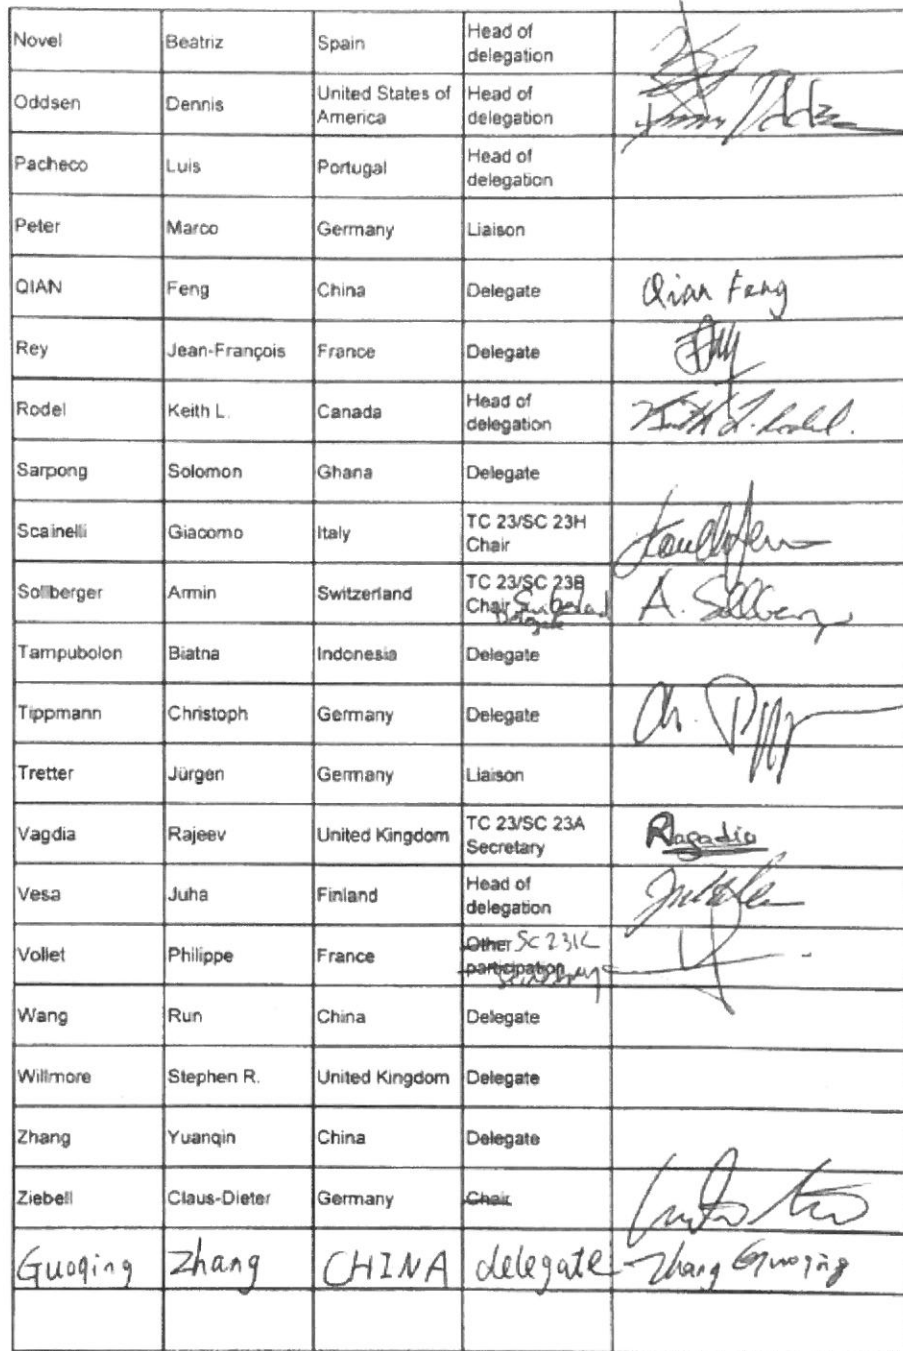 Novel Beatriz Spain Head of
delegation
Oddsen Dennis United States of Head of
America delegation
Pacheco Luis Portugal Head of
delegation
Peter Marco Germany Liaison
QIAN Feng China Delegate Qian Feng
Rey Jean-François France Delegate
Rodel Keith L. Canada Head of Keith L. Rodel.
delegation
Sarpong Solomon Ghana Delegate
Scainelli Giacomo Italy TC 23/SC 23H
Chair
Sollberger Armin Switzerland TC 23/SC 23B A. Sollberger
Chair Switzerland
Delegate
Tampubolon Biatna Indonesia Delegate
Tippmann Christoph Germany Delegate
Tretter Jürgen Germany Liaison
Vagdia Rajeev United Kingdom TC 23/SC 23A RVagadia
Secretary
Vesa Juha Finland Head of
delegation
Vollet Philippe France Other SC 23K
participation
Secretary
Wang Run China Delegate
Willmore Stephen R. United Kingdom Delegate
Zhang Yuanqin China Delegate
Ziebell Claus-Dieter Germany Chair
Guoqing Zhang CHINA delegate Zhang Guoqing